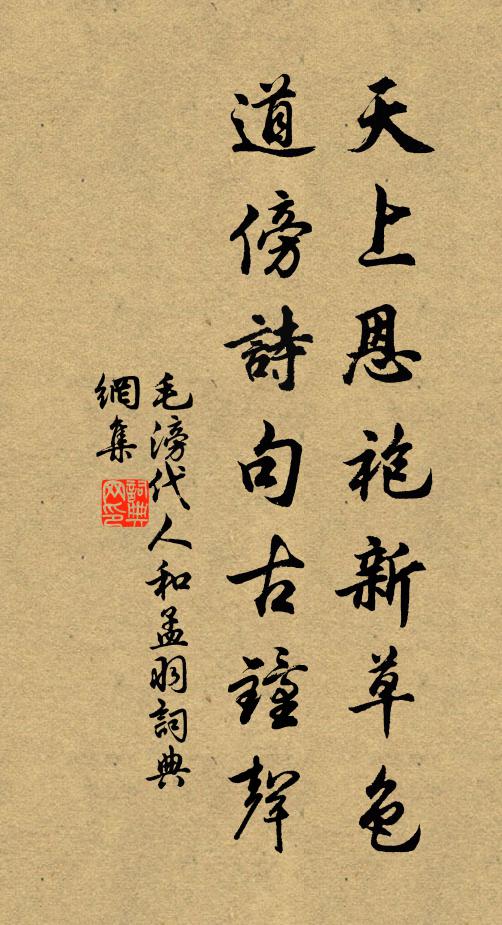 天上恩袍新草色
道傍詩句古鐘聲
毛滂代人和孟羽詞典
網集
詞典網印